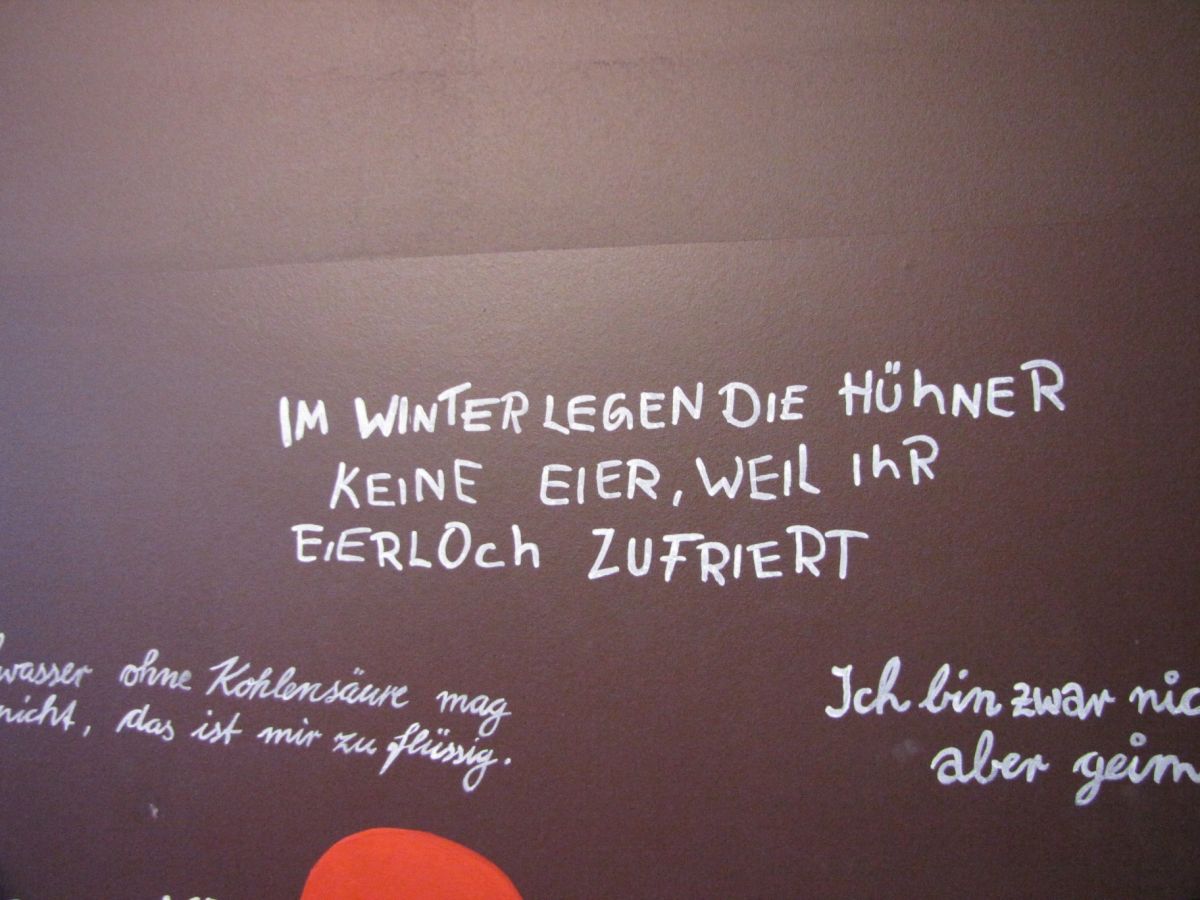 IM WINTER LEGEN DIE HÜHNER
KEINE EIER, WEIL IHR
EIERLOCH ZUFRIERT
wasser ohne Kohlensäure mag
nicht, das ist mir zu flüssig.
Ich bin zwar nic
aber geim